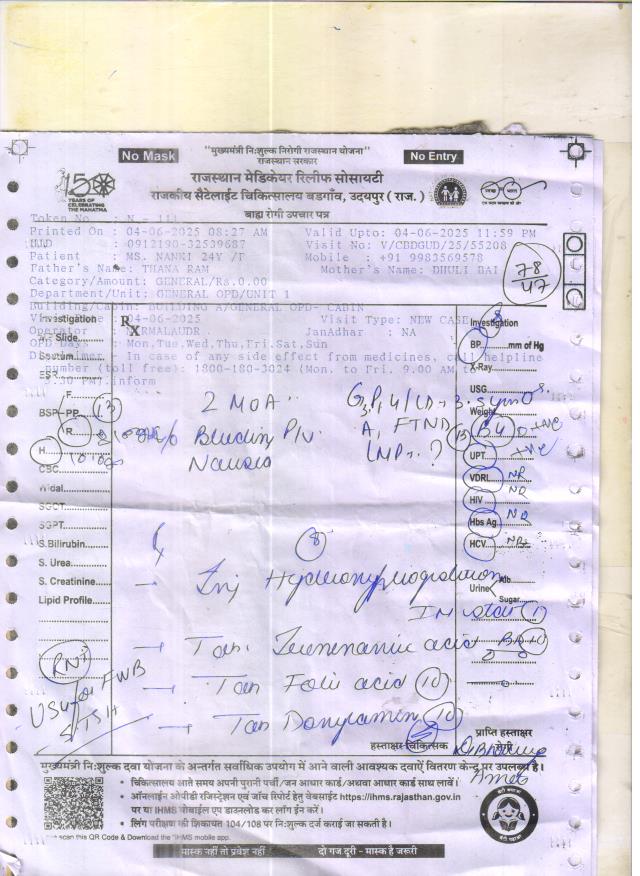 "मुख्यमंत्री नि:शुल्क निरोगी राजस्थान योजना"
No Mask
राजस्थान सरकार
No Entry
राजस्थान मेडिकेयर रिलीफ सोसायटी
150 YEARS OF CELEBRATING THE MAHATMA
राजकीय सैटेलाईट चिकित्सालय बडगाँव, उदयपुर ( राज. )
बाह्य रोगी उपचार पत्र
Token No : N - 111
Printed On : 04-06-2025 08:27 AM Valid Upto: 04-06-2025 11:59 PM
: 0912190-32539687 Visit No: V/CBDGUD/25/55208
Patient : MS. NANKI 24Y /F Mobile : +91 9983569578
Father's Name: THANA RAM Mother's Name: DHULI BAI
78/47
Category/Amount: GENERAL/Rs.0.00
Department/Unit: GENERAL OPD/UNIT 1
Building/Cabin: BUILDING A/GENERAL OPD- CABIN
: 04-06-2025 Visit Type: NEW CASE
Operator JanAadhar : NA
OPD Days : Mon,Tue,Wed,Thu,Fri,Sat,Sun
: In case of any side effect from medicines, call helpline
number (toll free): 1800-180-3024 (Mon. to Fri. 9.00 AM to
5.30 PM).inform
Investigation
Rx
Slide
Sputum
ESR
F
BSP- PP
R
H
CBC
Widal
SGOT
SGPT
S.Bilirubin
S. Urea
S. Creatinine
Lipid Profile
Investigation
BP mm of Hg
X-Ray
USG
Weight
B +ve
UPT +ve
VDRL NR
HIV NR
Hbs Ag NR
HCV NR
Urine Alb
Sugar
2 MOA
c/o Bleeding P/V
Nausea
A, FTND
LMP - ?
8
→ Inj Hydroxyprogesteron
IM stat (1)
→ Tab. Tranexamic acid
→ Tab Folic acid (10)
→ Tab Doxylamin (10)
USG for FWB
S/TSH
प्राप्ति हस्ताक्षर
हस्ताक्षर चिकित्सक रोगी
मुख्यमंत्री नि:शुल्क दवा योजना के अन्तर्गत सर्वाधिक उपयोग में आने वाली आवश्यक दवाऐं वितरण केन्द्र पर उपलब्ध है।
• चिकित्सालय आते समय अपनी पुरानी पर्ची/जन आधार कार्ड/अथवा आधार कार्ड साथ लावें।
• ऑनलाईन ओपीडी रजिस्ट्रेशन एवं जाँच रिपोर्ट हेतु वेबसाईट https://ihms.rajasthan.gov.in
पर या IHMS मोबाईल एप डाउनलोड कर लॉग ईन करें।
• लिंग परीक्षण की शिकायत 104/108 पर नि:शुल्क दर्ज कराई जा सकती है।
scan this QR Code & Download the "IHMS mobile app.
मास्क नहीं तो प्रवेश नहीं दो गज दूरी - मास्क है जरूरी